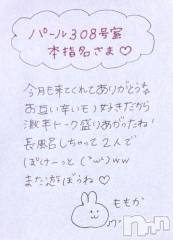 パール308号室
本指名さま♡
今月も来てくれてありがとうな
お互い辛いモノ好きだから
激辛トーク盛りあがったね!
長風呂しちゃって2人で
ぽけーっと(´ω`)ww
また遊ぼうね♡
ももか